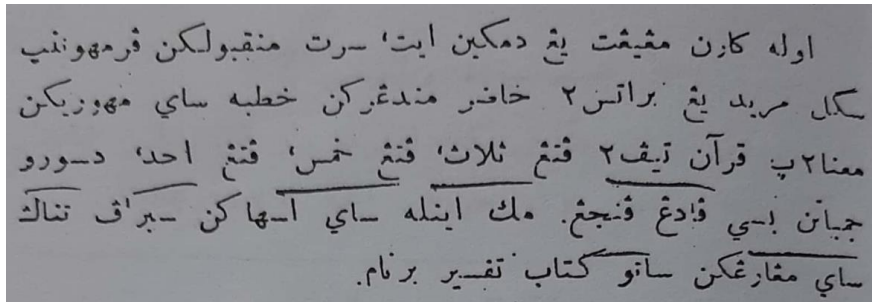 اوله كارن مڠيڠت يڠ دمكين ايت، سرت منقبولكن ڤرمهوننڽ
سكل مريد يڠ براتس٢ حاضر مندڠركن خطبه ساي مهوريكن
معنا٢ڽ قرآن تيڤ٢ ڤتڠ ثلاث، ڤتڠ خمس، ڤتڠ احد، دسورو
جمباتن بسي ڤادڠ ڤنجڠ. مك اينله ساي اسهاكن سبراڤ تناك
ساي مڠارڠكن ساتو كتاب تفسير برنام.